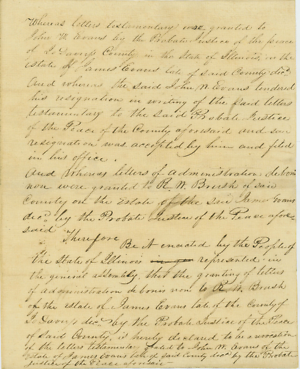 Whereas letters testamentary were granted to
John W Evans by the Probate Justice of the peace
of Jo Daviess County in the State of Illinois on the
estate of James Evans late of said County decd.
And whereas the said John W Evans tendered
his resignation in writing of the said letters
testamentary to the said Probate Justice
of the Peace of the County aforesaid and said
resignation was accepted by him and filed
in his office.
And Whereas letters of administration de bonis
non were granted to H. W. Brush of said
County on the Estate of the said James Evans
decd. by the Probate Justice of the Peace afore
said
Therefore
Be it enacted by the People of
the State of Illinois represented in
the general assembly that the granting of letters
of administration de bonis non to Brush
on the estate of James Evans late of the County of
Jo Daviess decd. by the Probate Justice of the Peace
of said County, is hereby declared to be a revocation
of the letters testamentary granted to John W Evans of the
Estate of James Evans late of said County decd by the Probate
Justice of the Peace